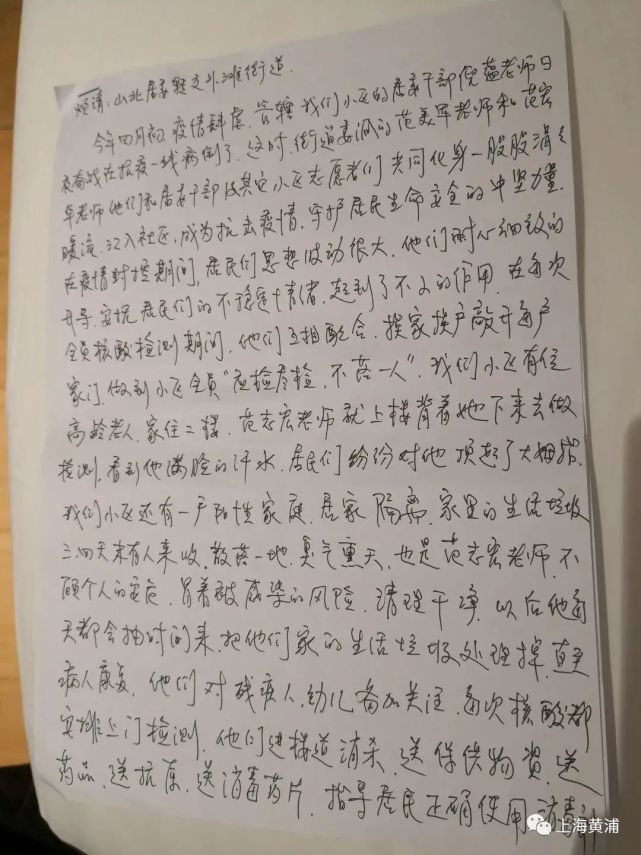 烦请：山北居委转交外滩街道.
今年四月初,疫情肆虐.管辖我们小区的居委干部倪蕴老师日
夜奋战在抗疫一线病倒了.这时,街道委派的范美军老师和范志
宏老师他们和居委干部及其它小区志愿者们共同化身一股股涓涓
暖流.汇入社区,成为抗击疫情.守护居民生命安全的中坚力量.
在疫情封控期间,居民们思想波动很大.他们耐心细致的
开导.安抚居民们的不稳定情绪.起到了不小的作用.在每次
全员核酸检测期间.他们互相配合.挨家挨户敲开每户
家门.做到小区全员"应检尽检,不落一人".我们小区有位
高龄老人.家住二楼.范志宏老师就上楼背着她下来去做
检测,看到他满脸的汗水.居民们纷纷对他顶起了大拇指.
我们小区还有一户阳性家庭.居家隔离.家里的生活垃圾
三.四天未有人来收.散落一地.臭气熏天.也是范志宏老师.不
顾个人的安危.冒着被感染的风险.清理干净.以后他每
天都会抽时间来.把他们家的生活垃圾处理掉.直至
病人康复.他们对残疾人.幼儿备加关注.每次核酸都
安排上门检测.他们进楼道消杀.送保供物资.送
药品.送抗原.送消毒药片.指导居民正确使用消毒
上海黄浦